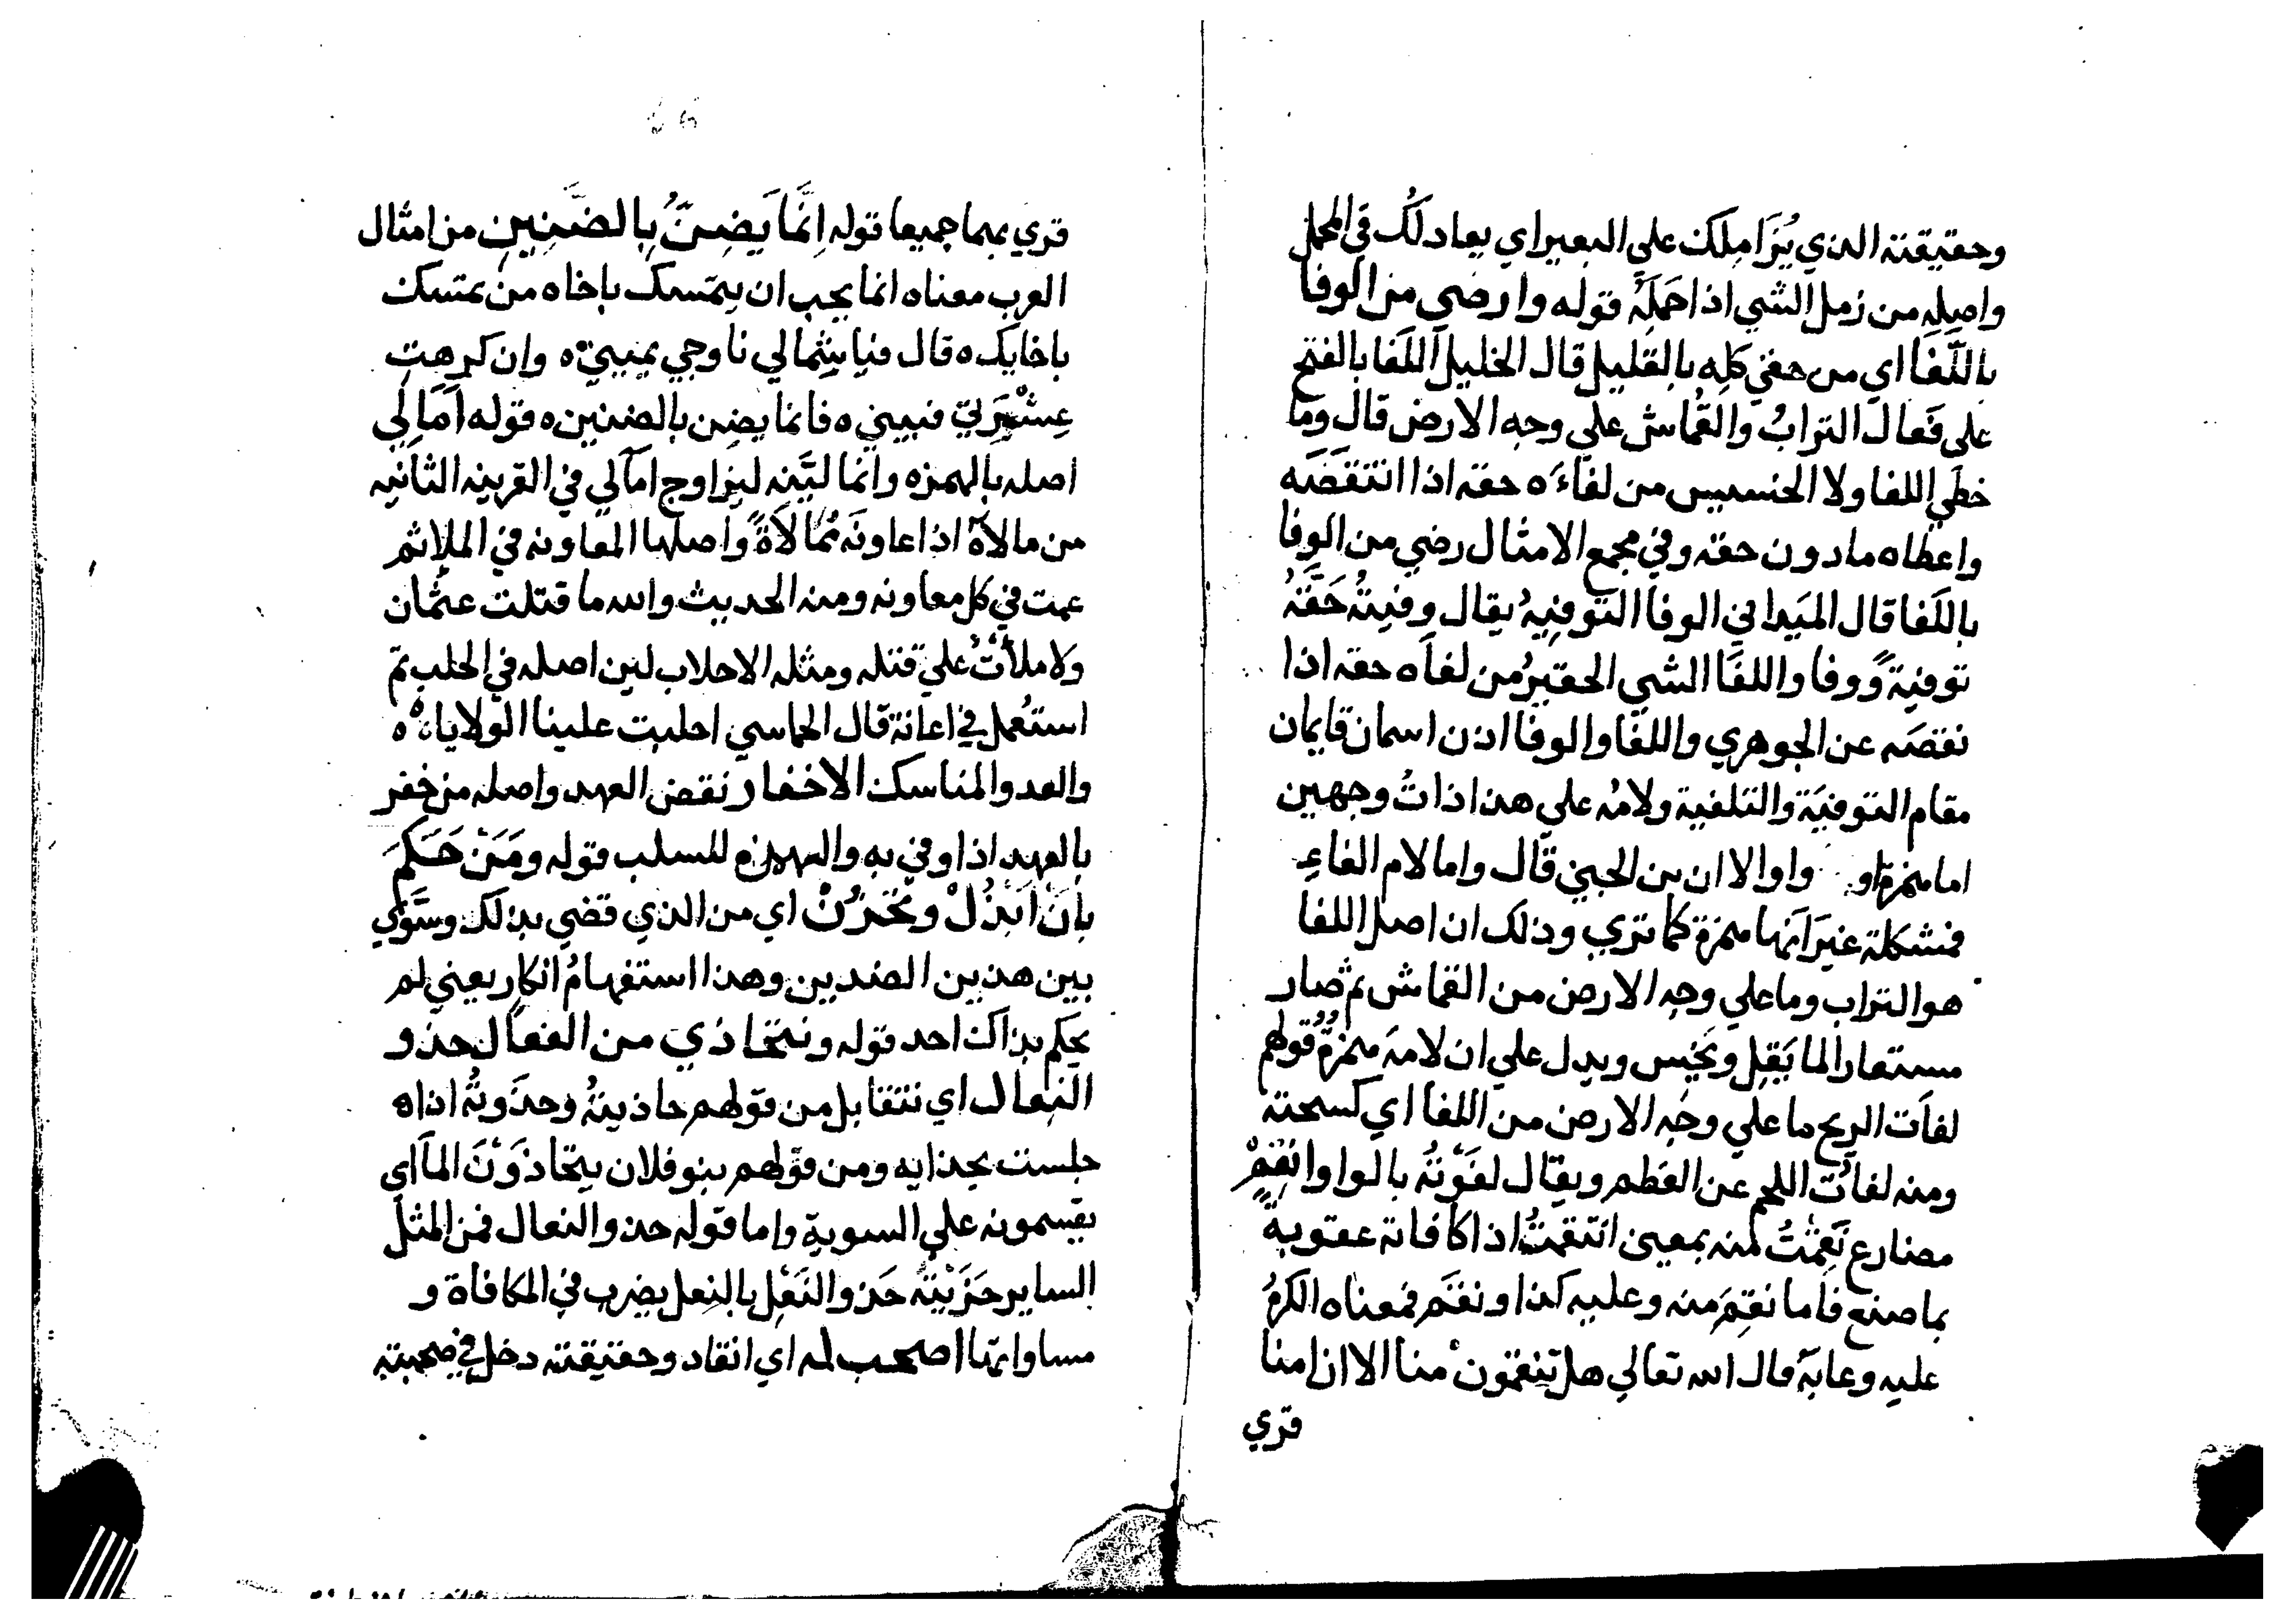 وحقيقته الذي يُزَامِلك على البعير اي يعادلُك في المحمل
واصله من زمل الشي اذا حَمَلَهُ قوله وارضي من الوفا
باللَّفَا اي من حقي كله بالقليل قال الخليل اللَفا بالفتح
على فَعَال الترابُ والقُماش علي وجه الارض قال وما
خطي اللفا ولا الخسيس من لفاءَه حقه اذا انتقصَه
واعطاه مادون حقه وفي مجمع الامثال رضي من الوفا
باللَفا قال المَيداني الوفا التوفيهُ يقال وفيتُهُ حَقَّهُ
توفيةً ووفا واللفَا الشي الحقيرُ من لفاَه حقه اذا
نقصَه عن الجوهري واللفا والوفا اذن اسمان قايمان
مقام التوفيَة والتلفية ولامُه علي هذا ذاتُ وجهين
اما همزة او واو الا ان بن الجني قال واما لام الفاءِ
فمشكلة غيرَ انها همزة كما تري وذلك ان اصل اللفا
هو التراب وما علي وجه الارض من القماش ثم صار
مستعارا لما يَقِل ويَخِس ويدل علي ان لامَه همزةٌ قولهم
لفاَت الريح ما علي وجه الارض من اللفا اي كسحته
ومنه لفاَت اللحم عن العظم ويقال لفَوْتُهُ بالواو انقِمْ
مضارع نَقِمْتُ منه بمعني انتقمتُ اذا كافاته عقوبةً
بما صنع فاما نقِمَ منه وعليه كذا ونقَم فمعناه الكرمُ
عليه وعابَهُ قال الله تعالي هل تنقمون منا الا ان امنا
قري
قري بهما جميعا قوله اِنَّمَا يَضِنُّ بِالضَّنِينِ من امثال
العرب معناه انما يجب ان يتمسك باخاه من يمتسك
باخايك ه قال فيا بشمالي ناوجي يميني ه وان كرهتِ
عِشْرَتي فبيني ه فانما يضن بالضنين ه قوله اُمَالِي
اصله بالهمزه وانما ليَّنه ليزاوج امآلي في القرينه الثانيه
من مالاَهُ اذا عاونَه مُمَالاَةً واصلها المعاونه في الملاثم
عمت في كل معاونه ومنه الحديث والله ما قتلت عثمان
ولا ملأتُ علي قتله ومثله الاحلاب لين اصله في الحلب ثم
استُعمل في اعانة قال الحماسي احلبت علينا الولايا ه
والعدو المناسك الاخفار نقض العهد واصله من خفر
بالعهد اذا وفي به والهمزة للسلب قوله ومَنْ حَكَمَ
بأنْ اَبْذُلْ وتَخْزُنْ اي من الذي قضي بذلك وسَوَّي
بين هذين الضدين وهذا استفهامُ انكار يعني لم
يحكم بذاك احد قوله ونتحاذي من الفعال حذو
النعال اي نتقابل من قولهم حاذيتُهُ وحذوتُهُ اذا ه
جلست بحذايه ومن قولهم بنو فلان يتحاذَوْنَ الماَ اي
يقسمونه علي السوية واما قوله حذو النعال فمن المثل
الساير حَزَيْتُهُ حَذو النَعْلِ بالنعل يضرب في المكافاة و
مساواتها اصحب له اي انقاد وحقيقته دخل في صحبته